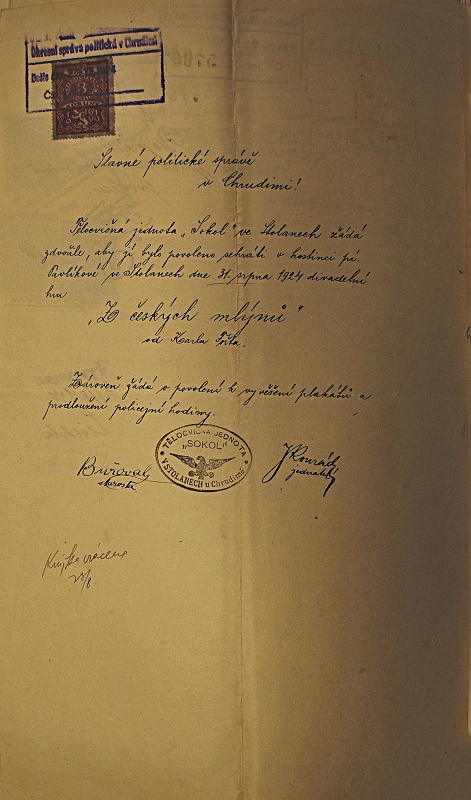 Okresní správa politická v Chrudimi
Došlo
Slavné politické správě
v Chrudimi!
Tělocvičná jednota „Sokol" ve Stolanech žádá
zdvořile, aby jí bylo povoleno sehráti v hostinci pí.
Pavlíkové ve Stolanech dne 31. srpna 1924 divadelní
hru
„Z českých mlýnů"
od Karla Fořta.
Zároveň žádá o povolení k vyvěšení plakátů a
prodloužení policejní hodiny.
TĚLOCVIČNÁ JEDNOTA
„SOKOL"
V STOLANECH u Chrudimě
starosta
JKonrád
jednatel